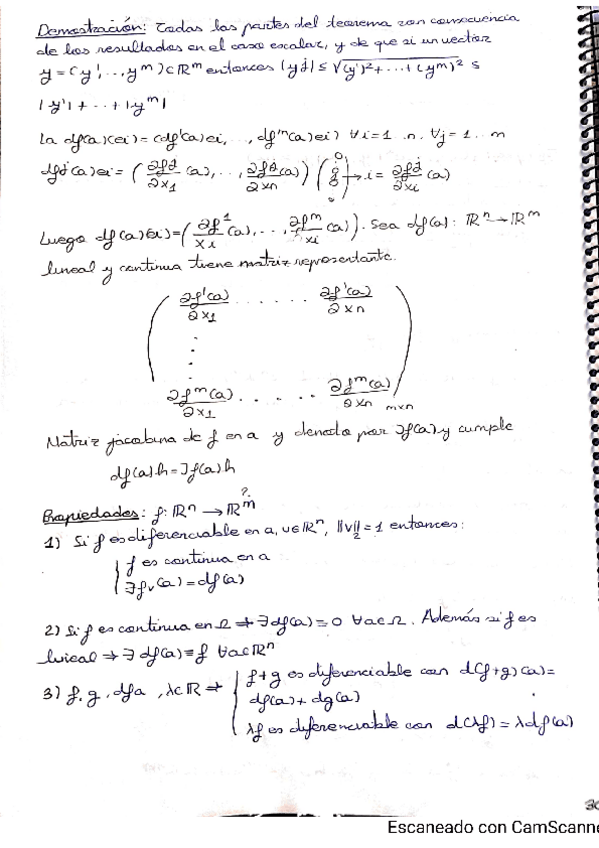 Demostración: Todas las partes del teorema son consecuencia
de los resultados en el caso escalar, y de que si un vector
y=(y¹,..,yᵐ)⊂ℝᵐ entonces |yʲ| ≤ √(y¹)²+...+(yᵐ)² ≤
|y¹|+..+|yᵐ|
La df(a)(ei)=(df¹(a)ei,..,dfᵐ(a)ei) ∀i=1..n. ∀j=1..m
dfʲ(a)ei=(∂fʲ/∂x₁(a),..,∂fʲ/∂xn(a)) (0 : 1 : 0)→i = ∂fʲ/∂xi(a)
Luego df(a)(ei)=(∂f¹/xi(a),..,∂fᵐ/xi(a)). Sea df(a): ℝⁿ→ℝᵐ
lineal y continua tiene matriz representante.
∂f¹(a)/∂x₁ ..... ∂f¹(a)/∂xn
⋮
∂fᵐ(a)/∂x₁ ..... ∂fᵐ(a)/∂xn mxn
Matriz jacobina de f en a y denoto por Jf(a) y cumple
df(a)h=Jf(a)h
Propiedades: f: ℝⁿ→ℝᵐ ?
1) Si f es diferenciable en a, v∈ℝⁿ, ||v||₂=1 entonces:
{ f es continua en a
∃fv(a)=df(a)
2) Si f es continua en Ω ⇒ ∃df(a)=0 ∀a∈Ω. Además si f es
lineal ⇒ ∃ df(a)=f ∀a∈ℝⁿ
3) f, g, dfa, λ∈ℝ ⇒ { f+g es diferenciable con d(f+g)(a)=
df(a)+dg(a)
λf es diferenciable con d(λf)=λdf(a)
30
Escaneado con CamScanne